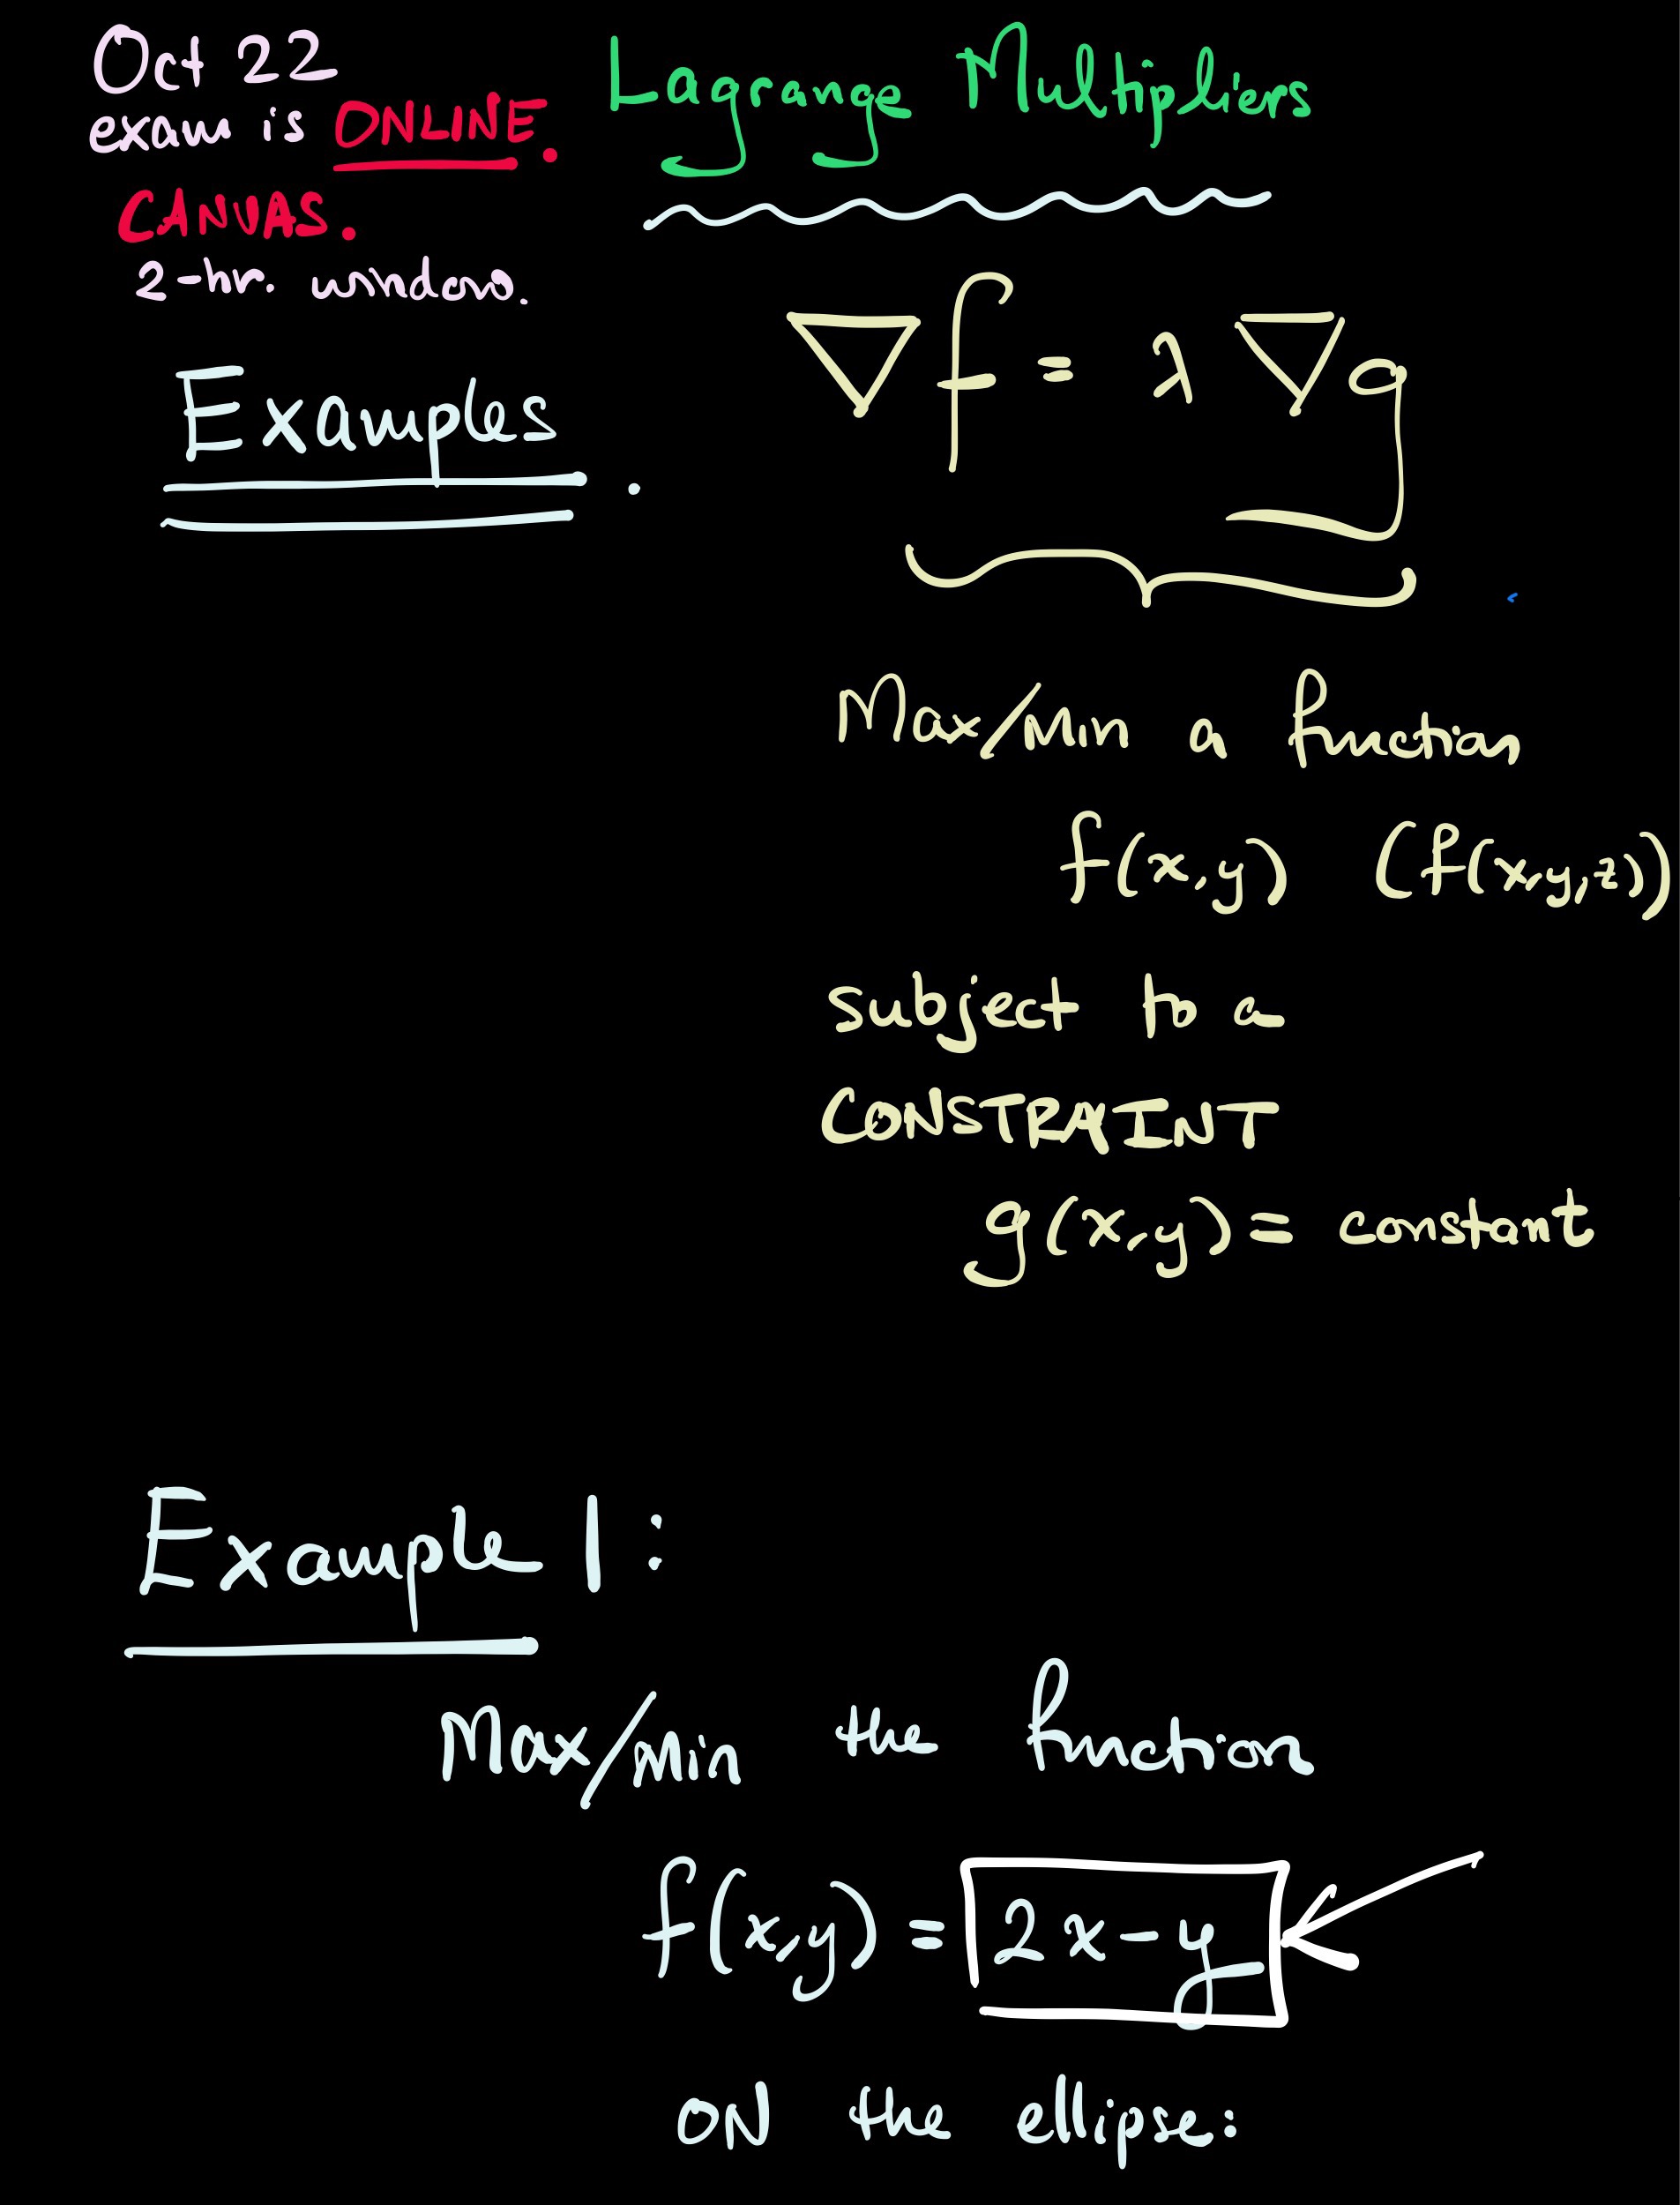 Oct 22
exam is ONLINE.
CANVAS.
2-hr. window.
Lagrange Multipliers
Examples.
∇f = λ ∇g
Max/Min a function
f(x,y) (f(x,y,z))
subject to a
CONSTRAINT
g(x,y) = constant
Example 1:
Max/Min the function
f(x,y) = 2x-y
ON the ellipse: